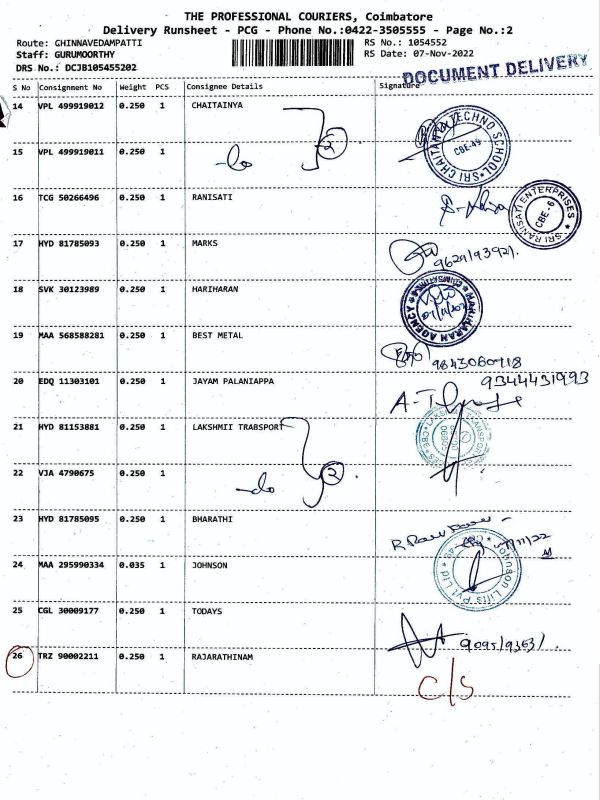 THE PROFESSIONAL COURIERS, Coimbatore
Delivery Runsheet - PCG - Phone No.:0422-3505555 - Page No.:2
Route: CHINNAVEDAMPATTI
RS No.: 1054552
Staff: GURUMOORTHY
RS Date: 07-Nov-2022
DRS No.: DCJB105455202
DOCUMENT DELIVERY
S No Consignment No Weight PCS Consignee Details Signature
14 VPL 499919012 0.250 1 CHAITAINYA
SRI CHAITANYA TECHNO SCHOOL CBE-49
15 VPL 499919011 0.250 1 -do 2
16 TCG 50266496 0.250 1 RANISATI
SRI RANISATI ENTERPRISES CBE-6
17 HYD 81785093 0.250 1 MARKS
18 SVK 30123989 0.250 1 HARIHARAN
HARIHARAN AGENCY
19 MAA 568588281 0.250 1 BEST METAL
20 EDQ 11303101 0.250 1 JAYAM PALANIAPPA
9344431993
21 HYD 81153881 0.250 1 LAKSHMII TRABSPORT
22 VJA 4790675 0.250 1 -do 2
23 HYD 81785095 0.250 1 BHARATHI
24 MAA 295990334 0.035 1 JOHNSON
Johnson Lifts Pvt Ltd
25 CGL 30009177 0.250 1 TODAYS
26 TRZ 90002211 0.250 1 RAJARATHINAM
C/S